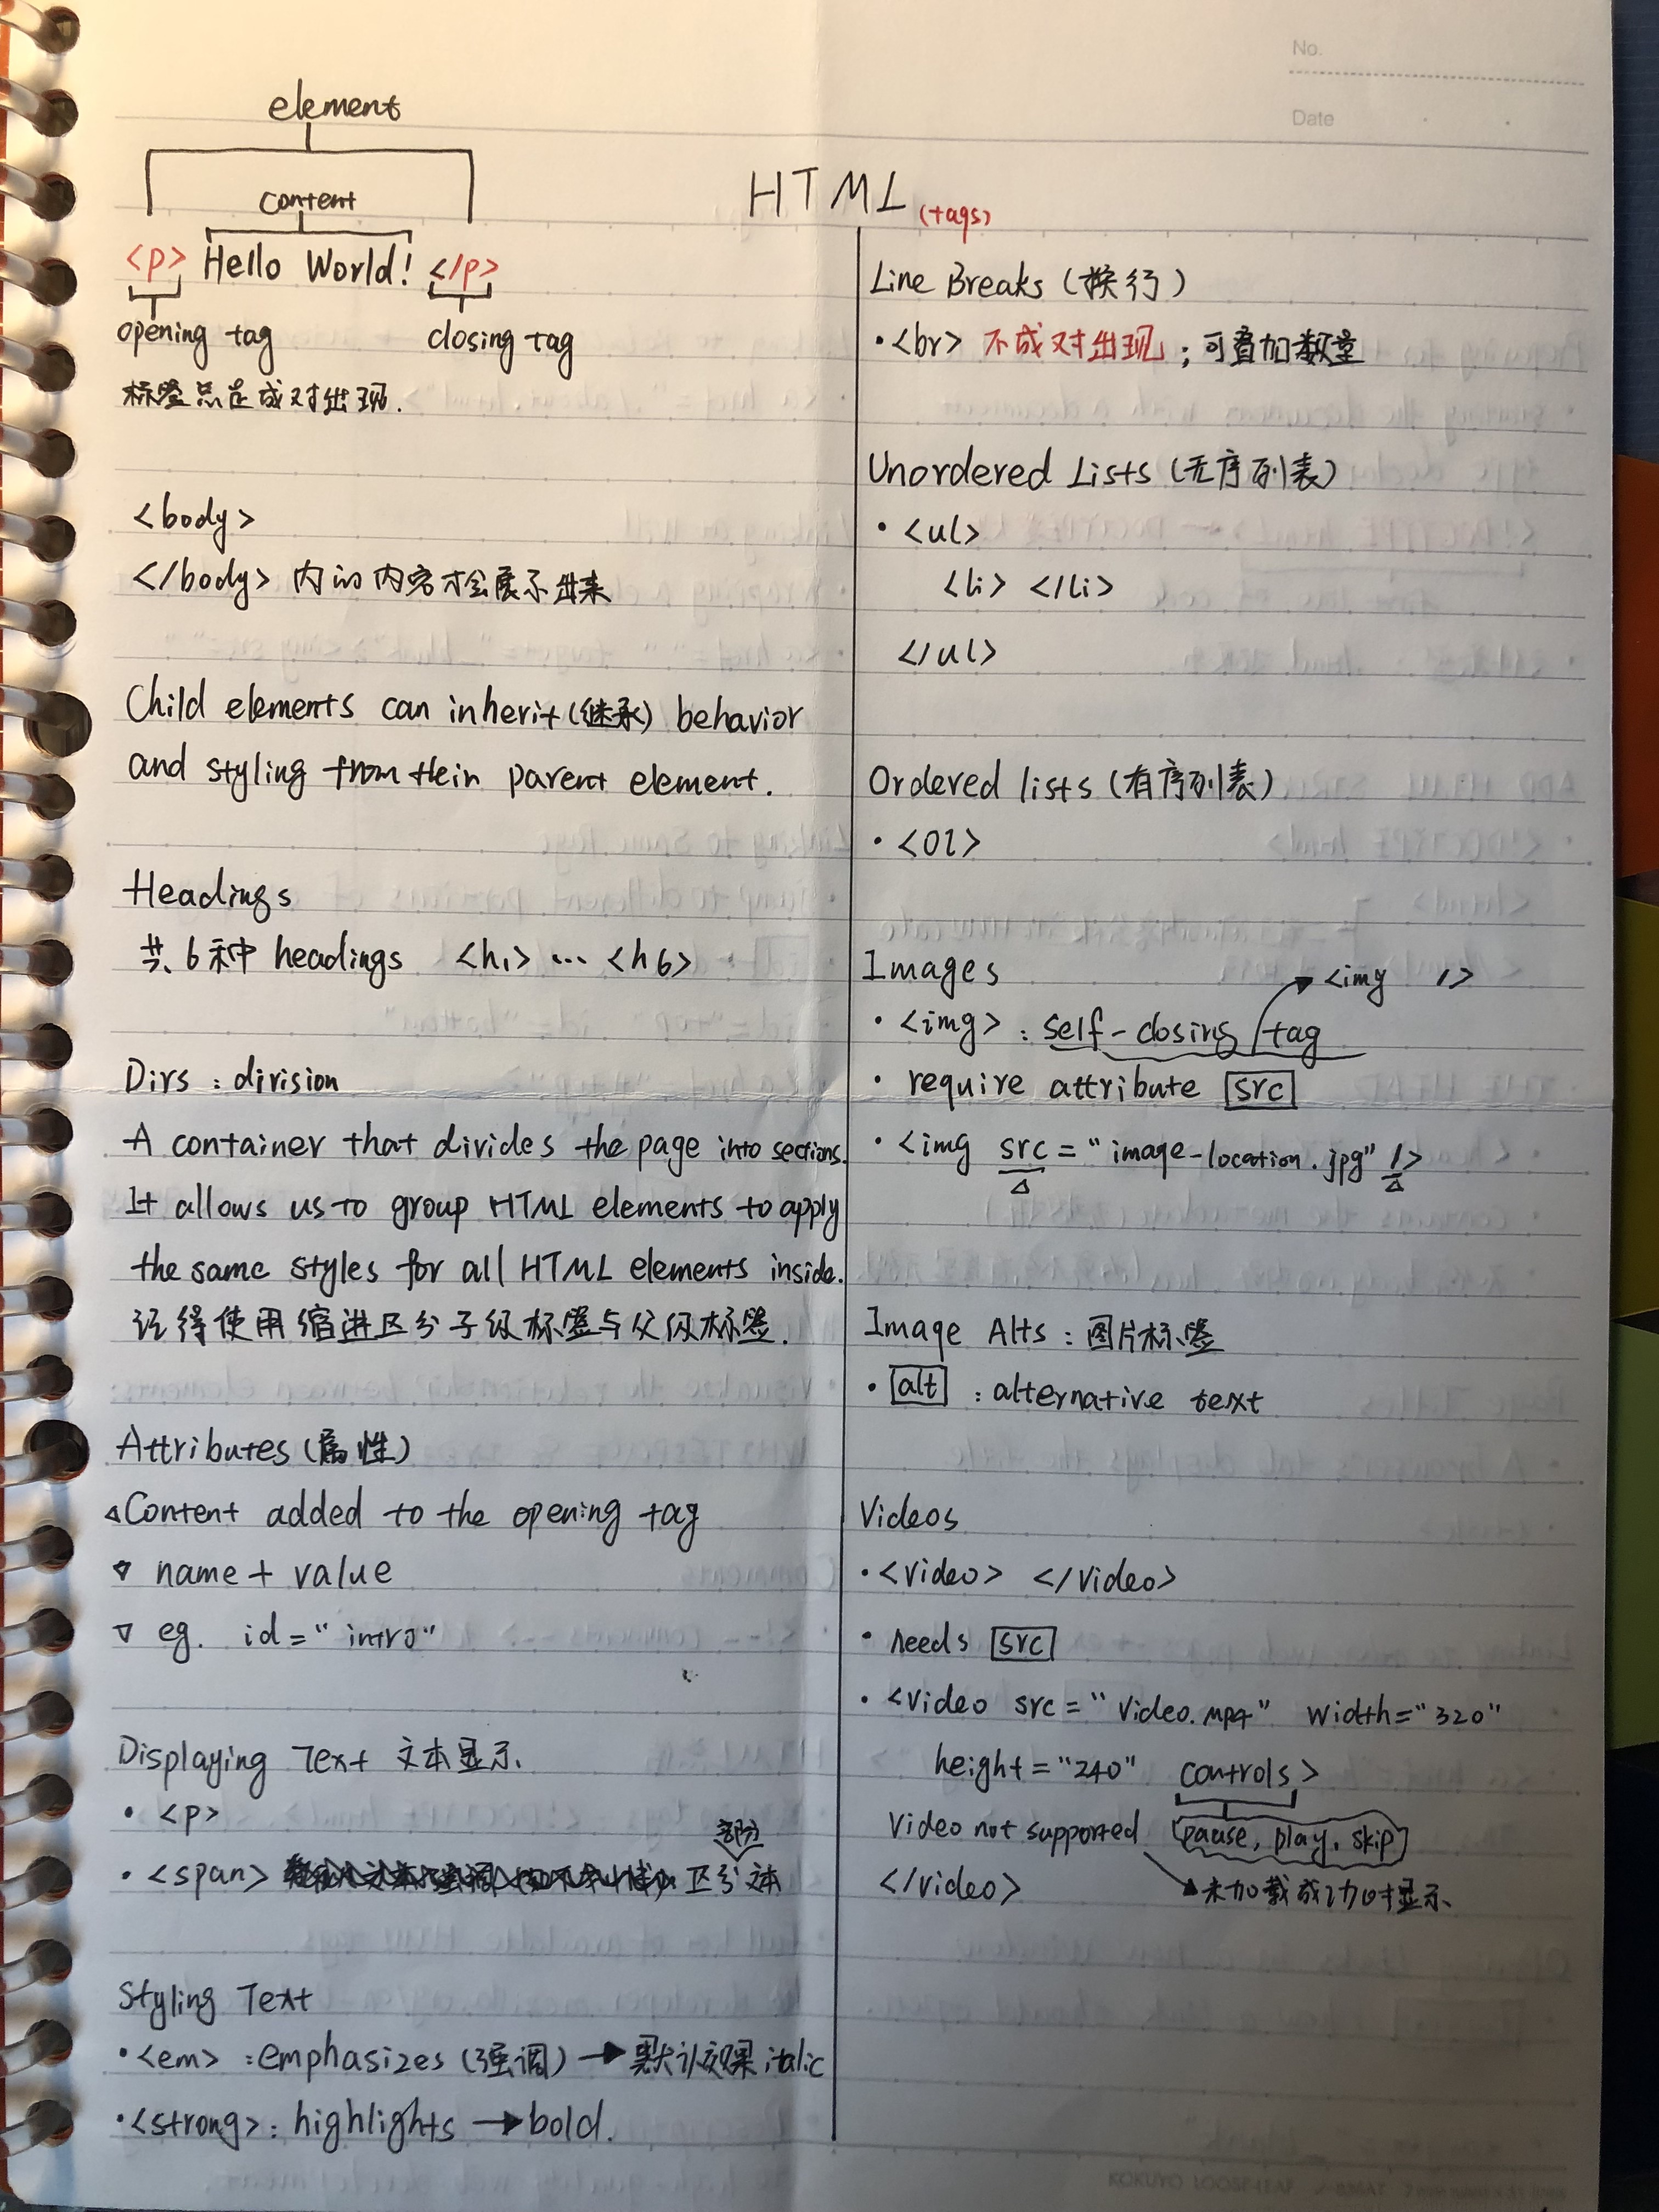 No.
Date
HTML (tags)
element
content
<p> Hello World! </p>
opening tag closing tag
标签总是成对出现.
<body>
</body> 内的内容才会展示出来
Child elements can inherit(继承) behavior
and styling from their parent element.
Headings
共6种 headings <h1> ... <h6>
Divs : division
A container that divides the page into sections.
It allows us to group HTML elements to apply
the same styles for all HTML elements inside.
记得使用缩进区分子级标签与父级标签.
Attributes (属性)
Content added to the opening tag
name + value
eg. id="intro"
Displaying Text 文本显示
• <p>
部分
• <span> 区分文本
Styling Text
• <em> : emphasizes (强调) → 默认效果 italic
• <strong> : highlights → bold.
Line Breaks (换行)
• <br> 不成对出现 ; 可叠加数量
Unordered Lists (无序列表)
• <ul>
<li> </li>
</ul>
Ordered lists (有序列表)
• <ol>
Images
<img />
• <img> : self-closing tag
• require attribute src
• <img src = "image-location.jpg" />
Image Alts : 图片标签
• alt : alternative text
Videos
• <video> </video>
• needs src
• <video src = "video.mp4" width="320"
height="240" controls>
Video not supported pause, play, skip
</video> 未加载成功时显示
KOKUYO LOOSE-LEAF